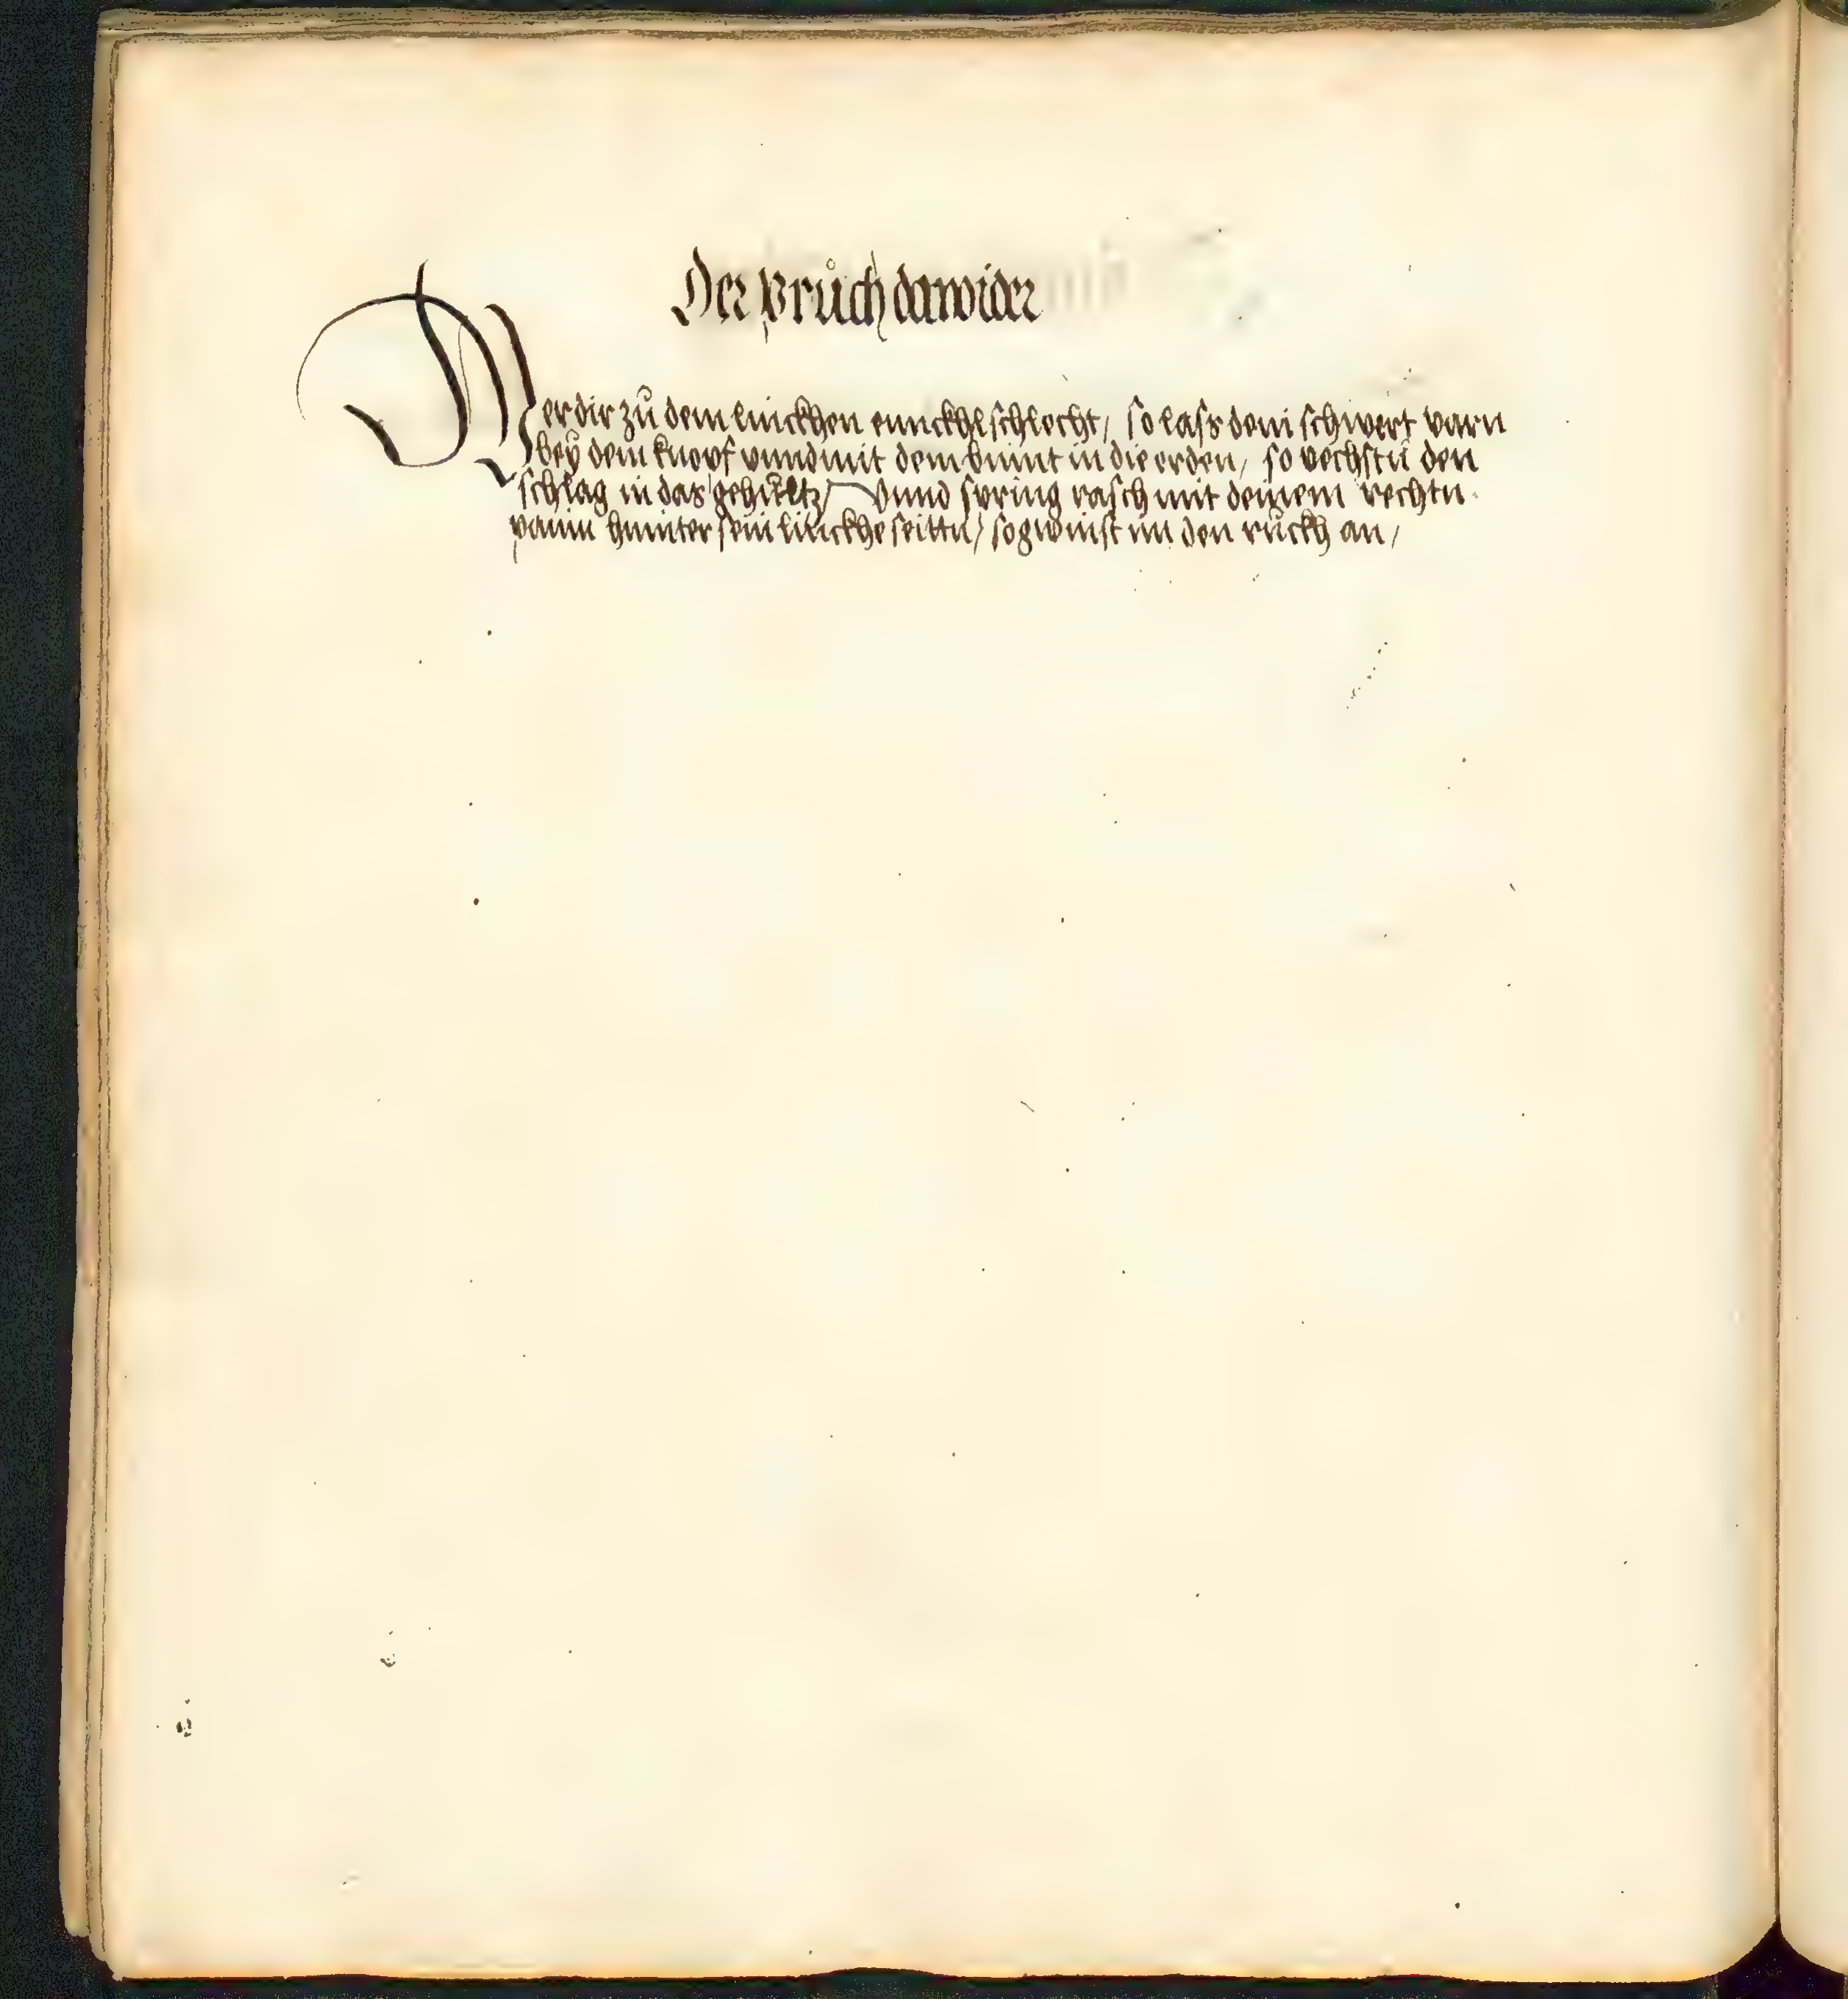 Der Pruch dawider
Wer dir zu dem linckhen ennckhl schlecht, so lass dein schwert varn
bey dem knopf vnnd mit dem binnt in die erden, so vechstu den
schlag in das gehultz, Vnnd spring rasch mit deinem rechtn
painn hinnter sein linckhe seittn, so gwinst im den ruckh an,